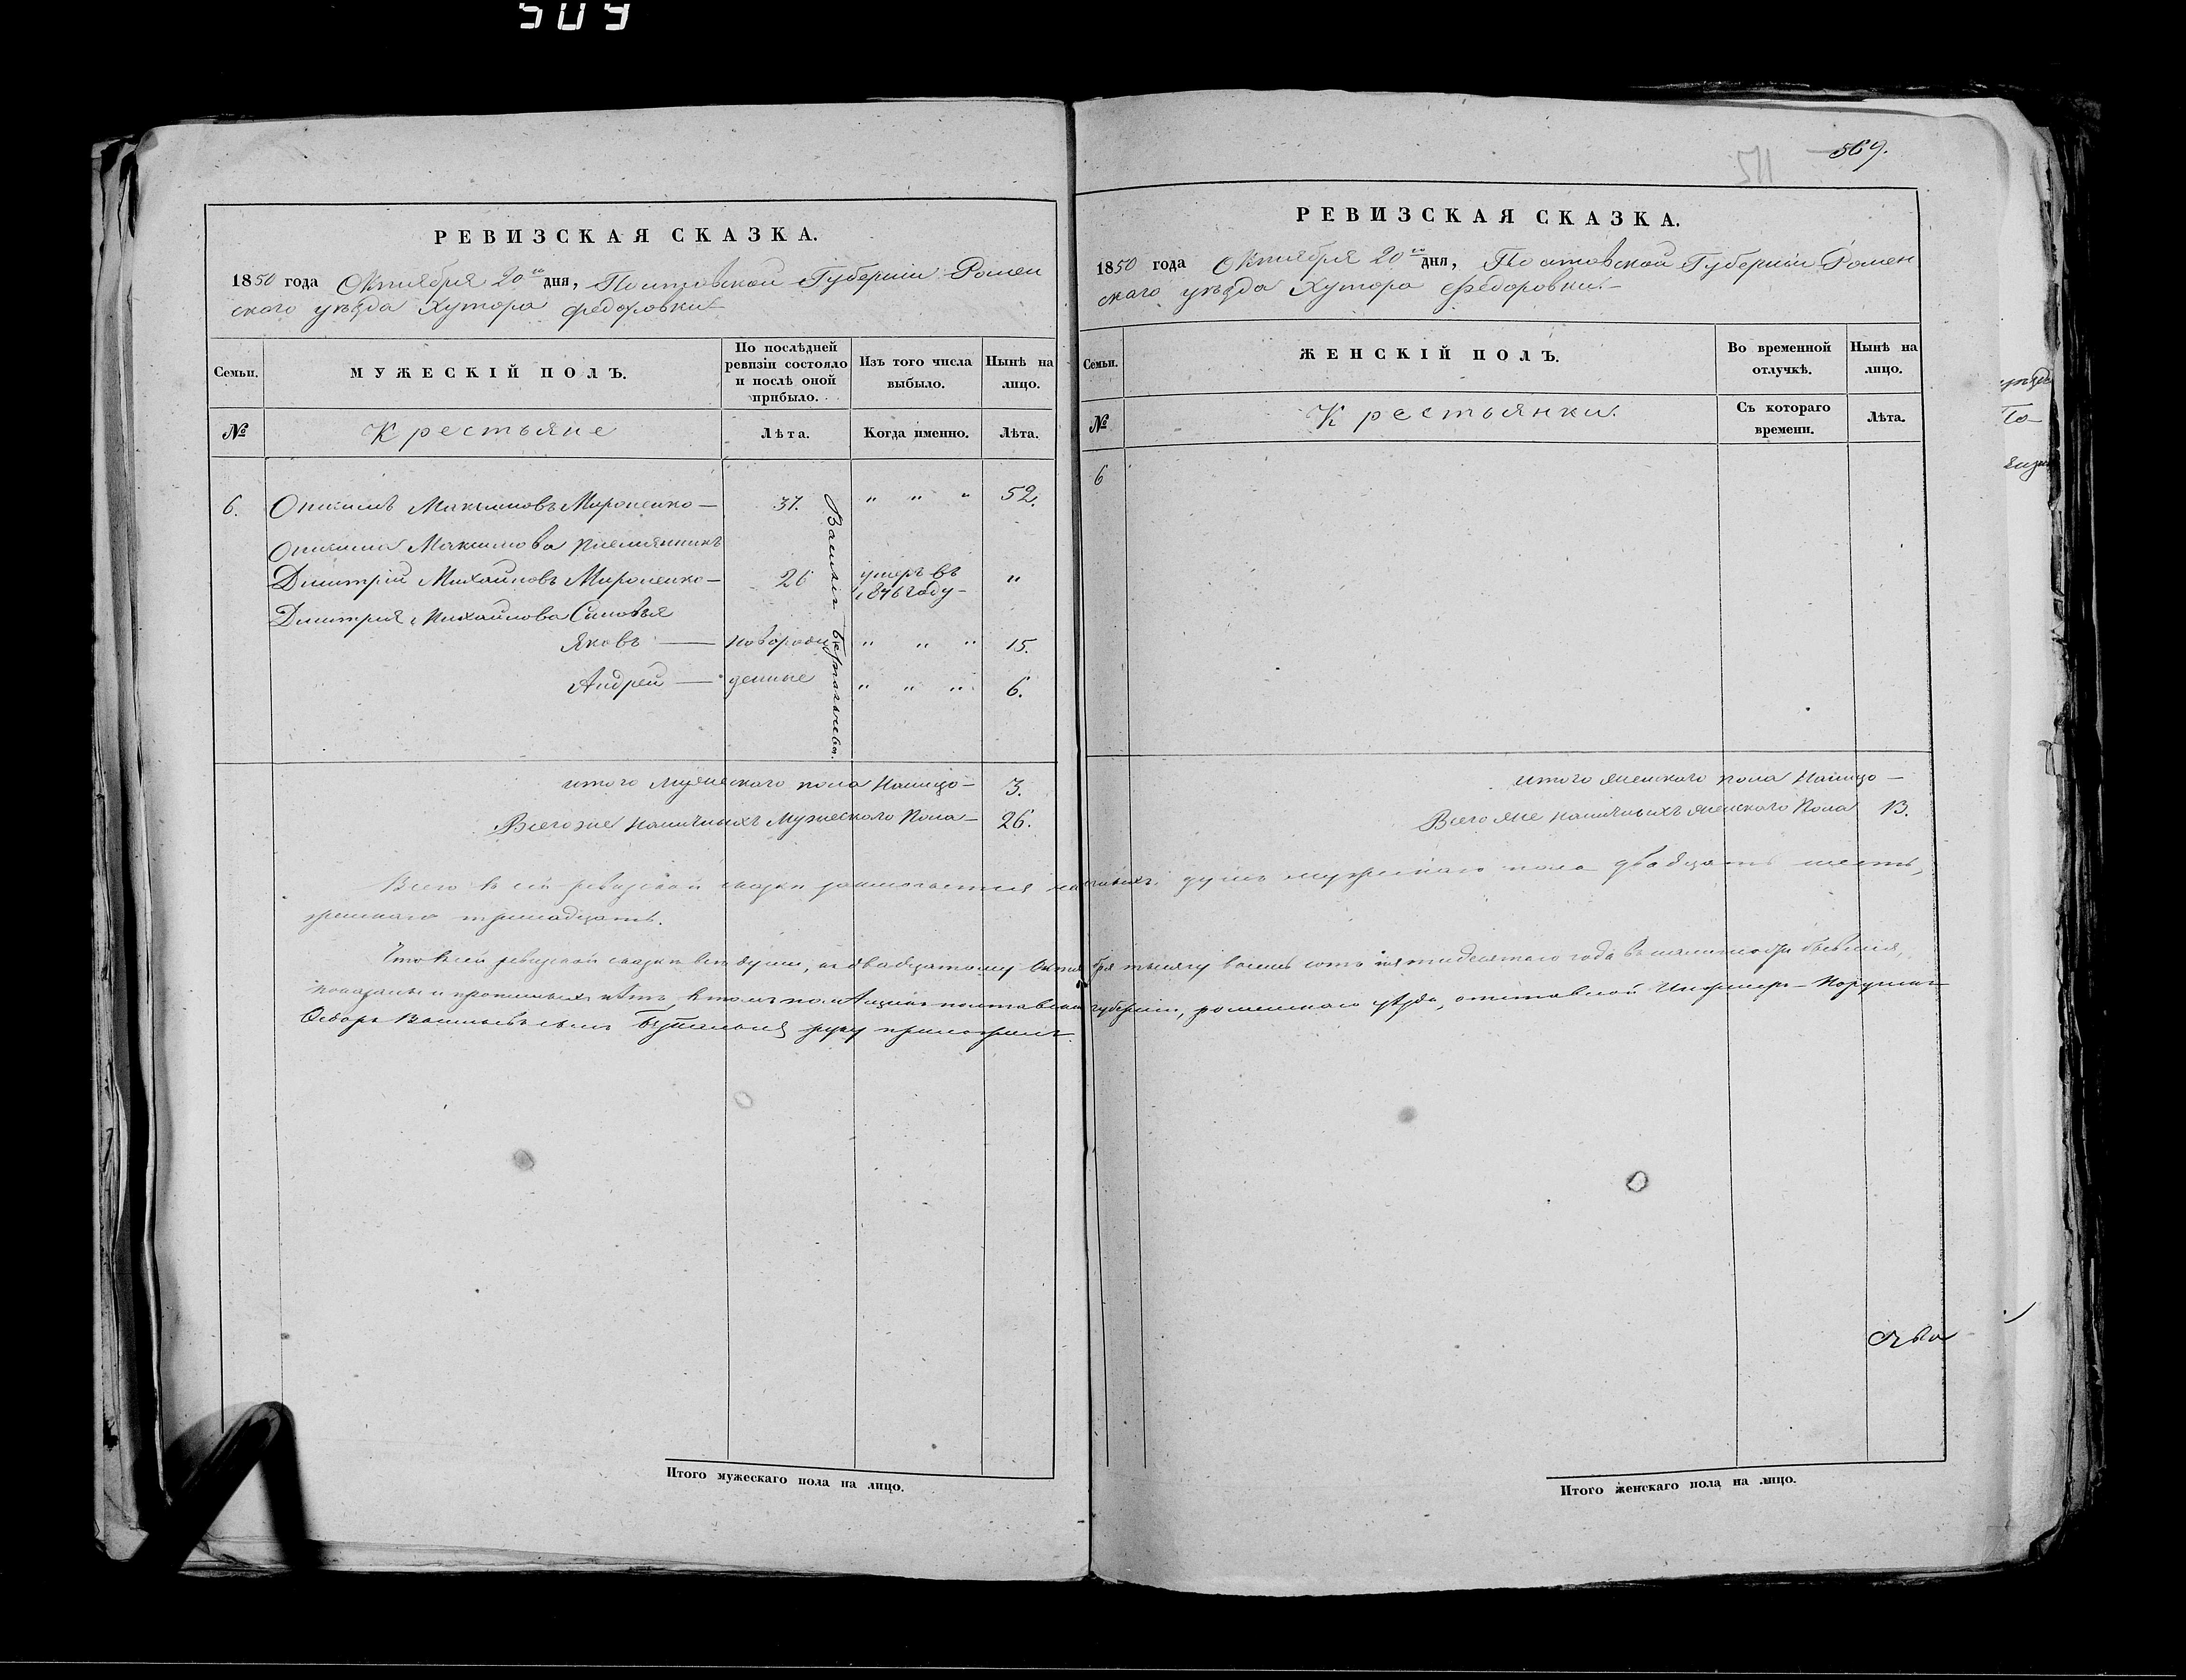 509
РЕВИЗСКАЯ СКАЗКА.
1850 года Октября 20го дня, Полтавской Губерніи Ромен
ского уѣзда Хутора Федоровки
Семьи.
МУЖЕСКІЙ ПОЛЪ.
По послѣдней ревизіи состояло и послѣ оной прибыло.
Изъ того числа выбыло.
Нынѣ на лицо.
№
Крестьяне
Лѣта.
Когда именно.
Лѣта.
6. Онисимъ Максимовъ Мироненко — 37. " " " 52.
Онисима Максимова племянникъ
Дмитрій Михайловъ Мироненко — 26 умеръ въ 1846 году — "
Дмитрія Михайлова Сыновья
Яковъ — новорож " " " 15.
Андрей — денние " " " 6.
Василій
итого мужеского пола налицо — 3.
Всего же наличныхъ Мужеского Пола — 26.
569.
511
РЕВИЗСКАЯ СКАЗКА.
1850 года Октября 20го дня, Полтавской Губерніи Ромен
ского уѣзда Хутора Федоровки
Семьи.
ЖЕНСКІЙ ПОЛЪ.
Во временной отлучкѣ.
Нынѣ на лицо.
№
Крестьянки.
Съ котораго времени.
Лѣта.
6
итого женского пола налицо —
Всего же наличныхъ женского Пола 13.
Всего в сей ревизской сказки заключается наличныхъ душъ мужескаго пола двадцать шесть,
женскаго тринадцать.
Что в сей ревизской сказки все души, к двадцатому октября тысячу восемь сотъ пятидесятаго года в наличности бывшія,
показаны и пропилыхъ нѣтъ, в томъ полтавской губерніи, роменскаго уѣзда, отставной Инженеръ-Порутчикъ
Ѳедоръ Васильевъ сынъ руку приложилъ
Итого мужескаго пола на лицо.
Итого женскаго пола на лицо.